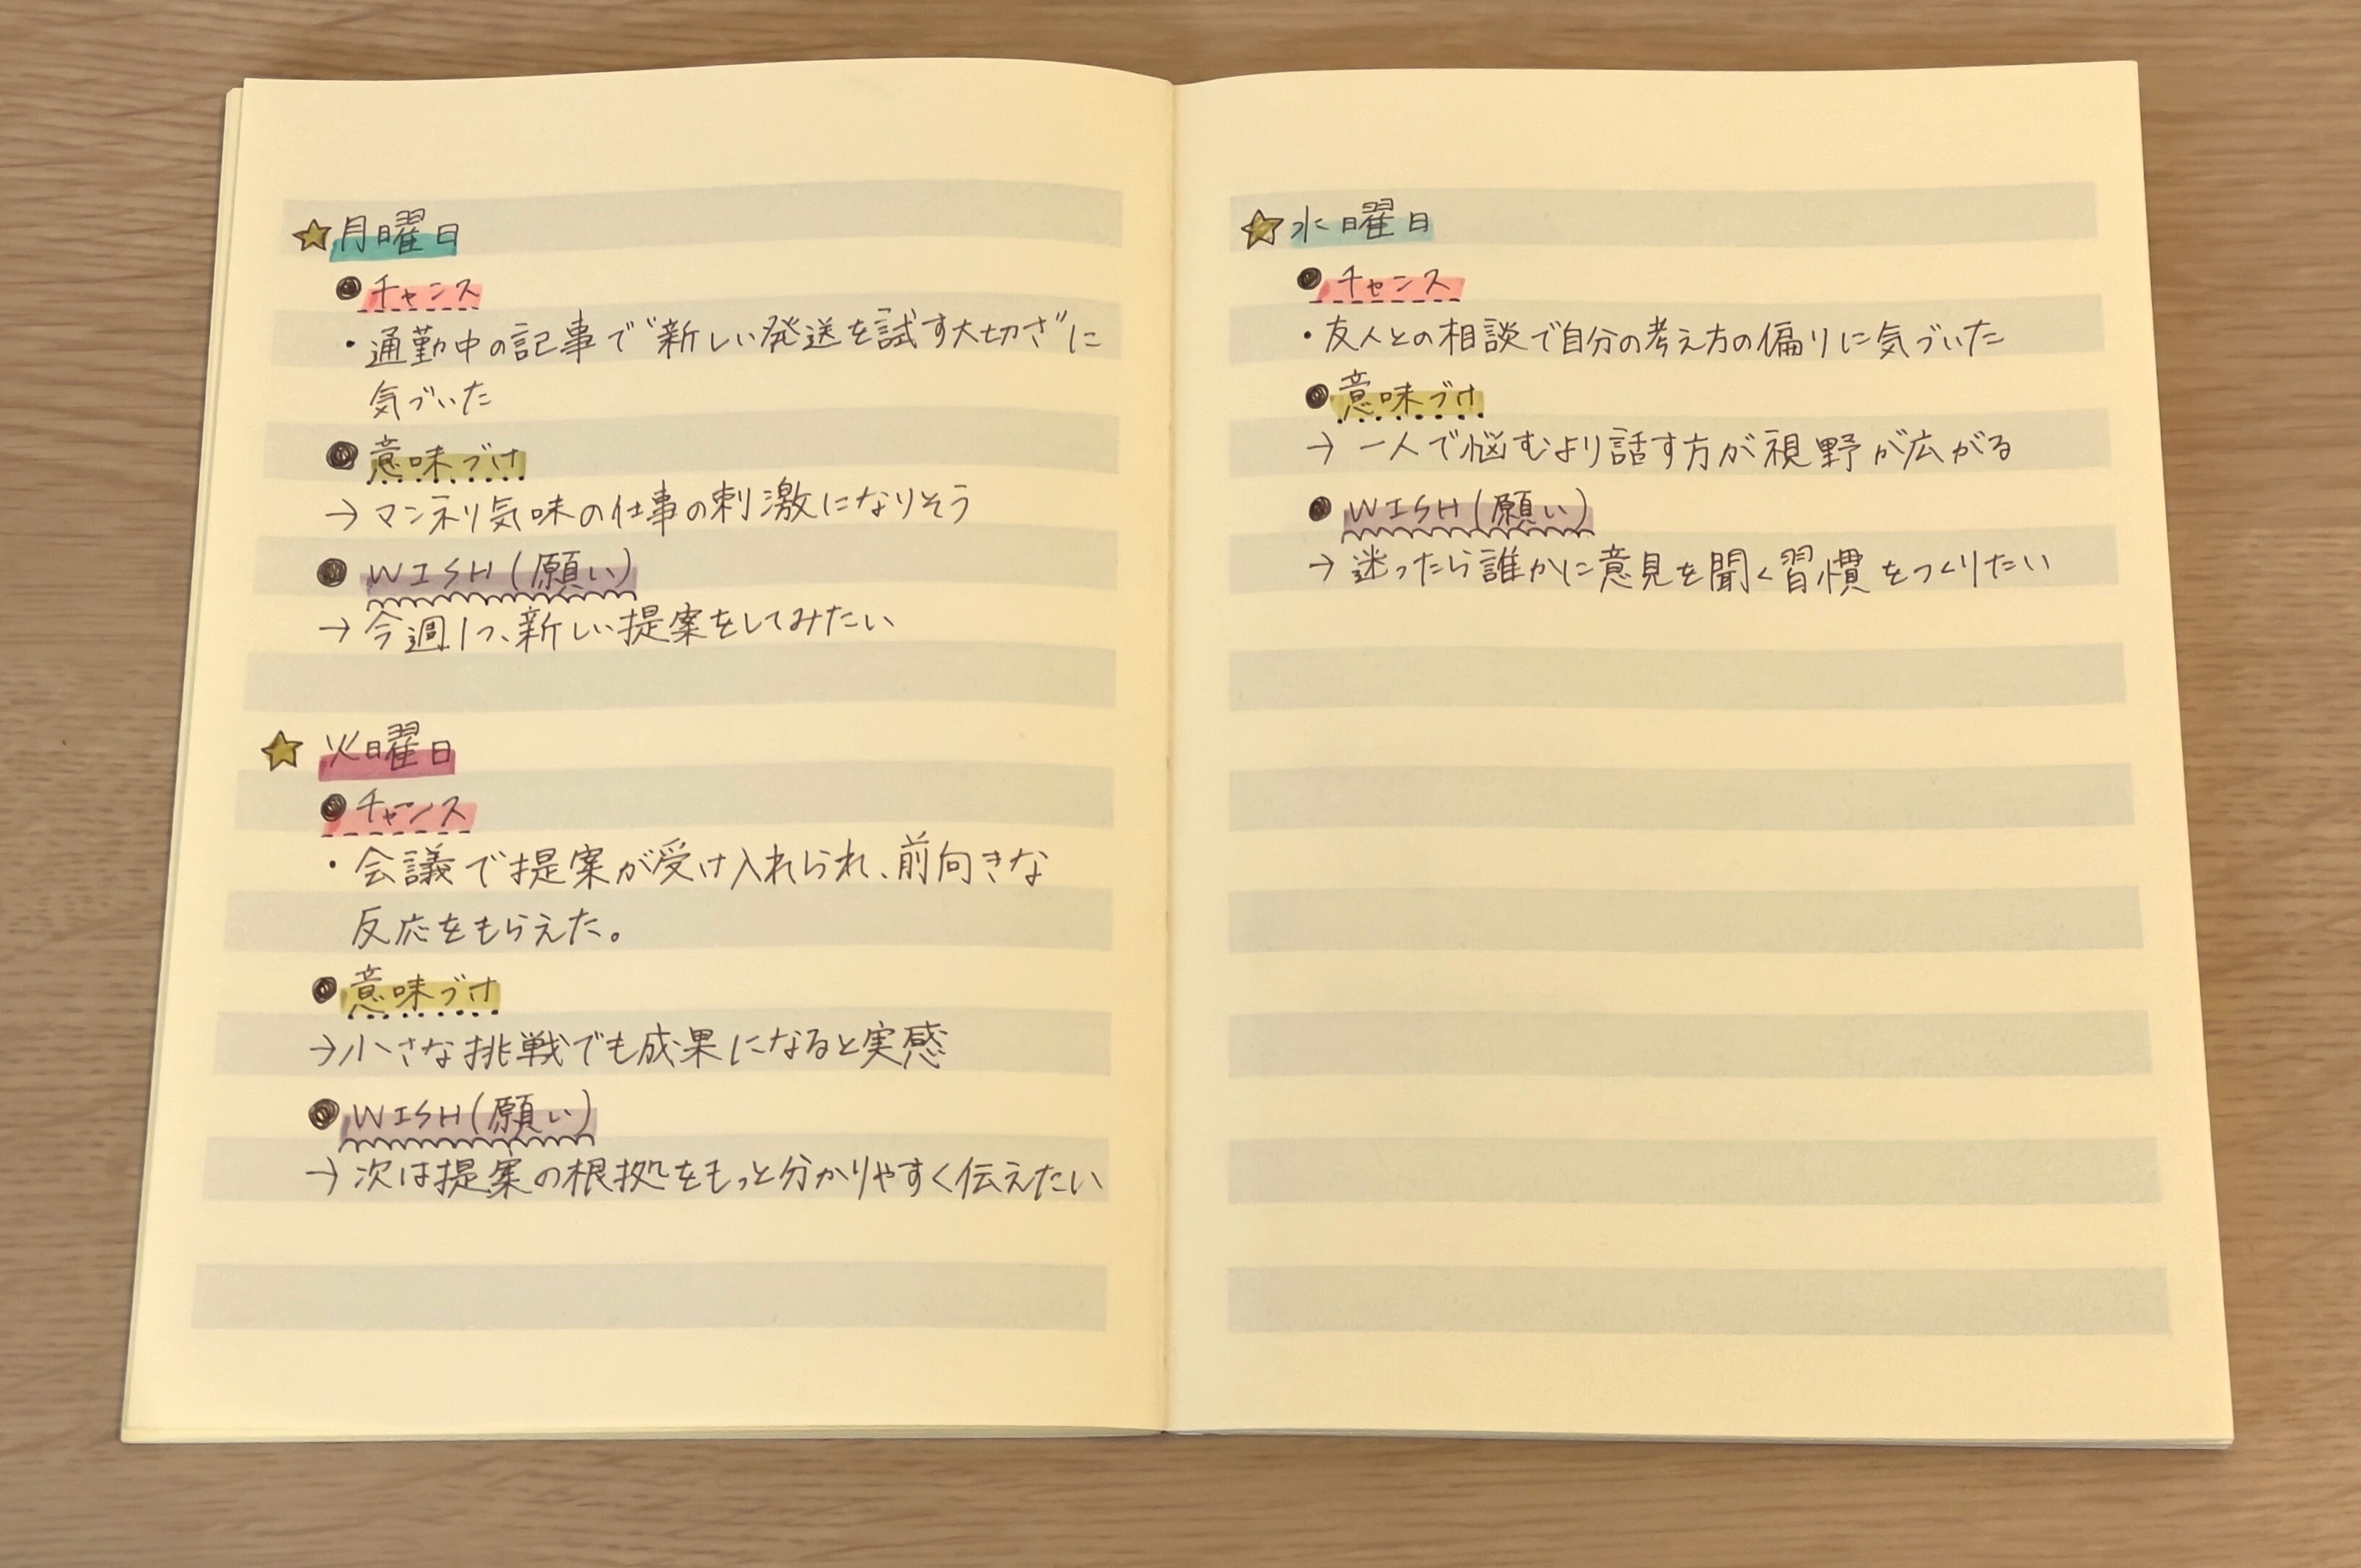 ★月曜日
●チャンス
・通勤中の記事で"新しい発送を試す大切さ"に
気づいた
●意味づけ
→マンネリ気味の仕事の刺激になりそう
●WISH(願い)
→今週1つ、新しい提案をしてみたい
★火曜日
●チャンス
・会議で提案が受け入れられ、前向きな
反応をもらえた。
●意味づけ
→小さな挑戦でも成果になると実感
●WISH(願い)
→次は提案の根拠をもっと分かりやすく伝えたい
★水曜日
●チャンス
・友人との相談で自分の考え方の偏りに気づいた
●意味づけ
→一人で悩むより話す方が視野が広がる
●WISH(願い)
→迷ったら誰かに意見を聞く習慣をつくりたい